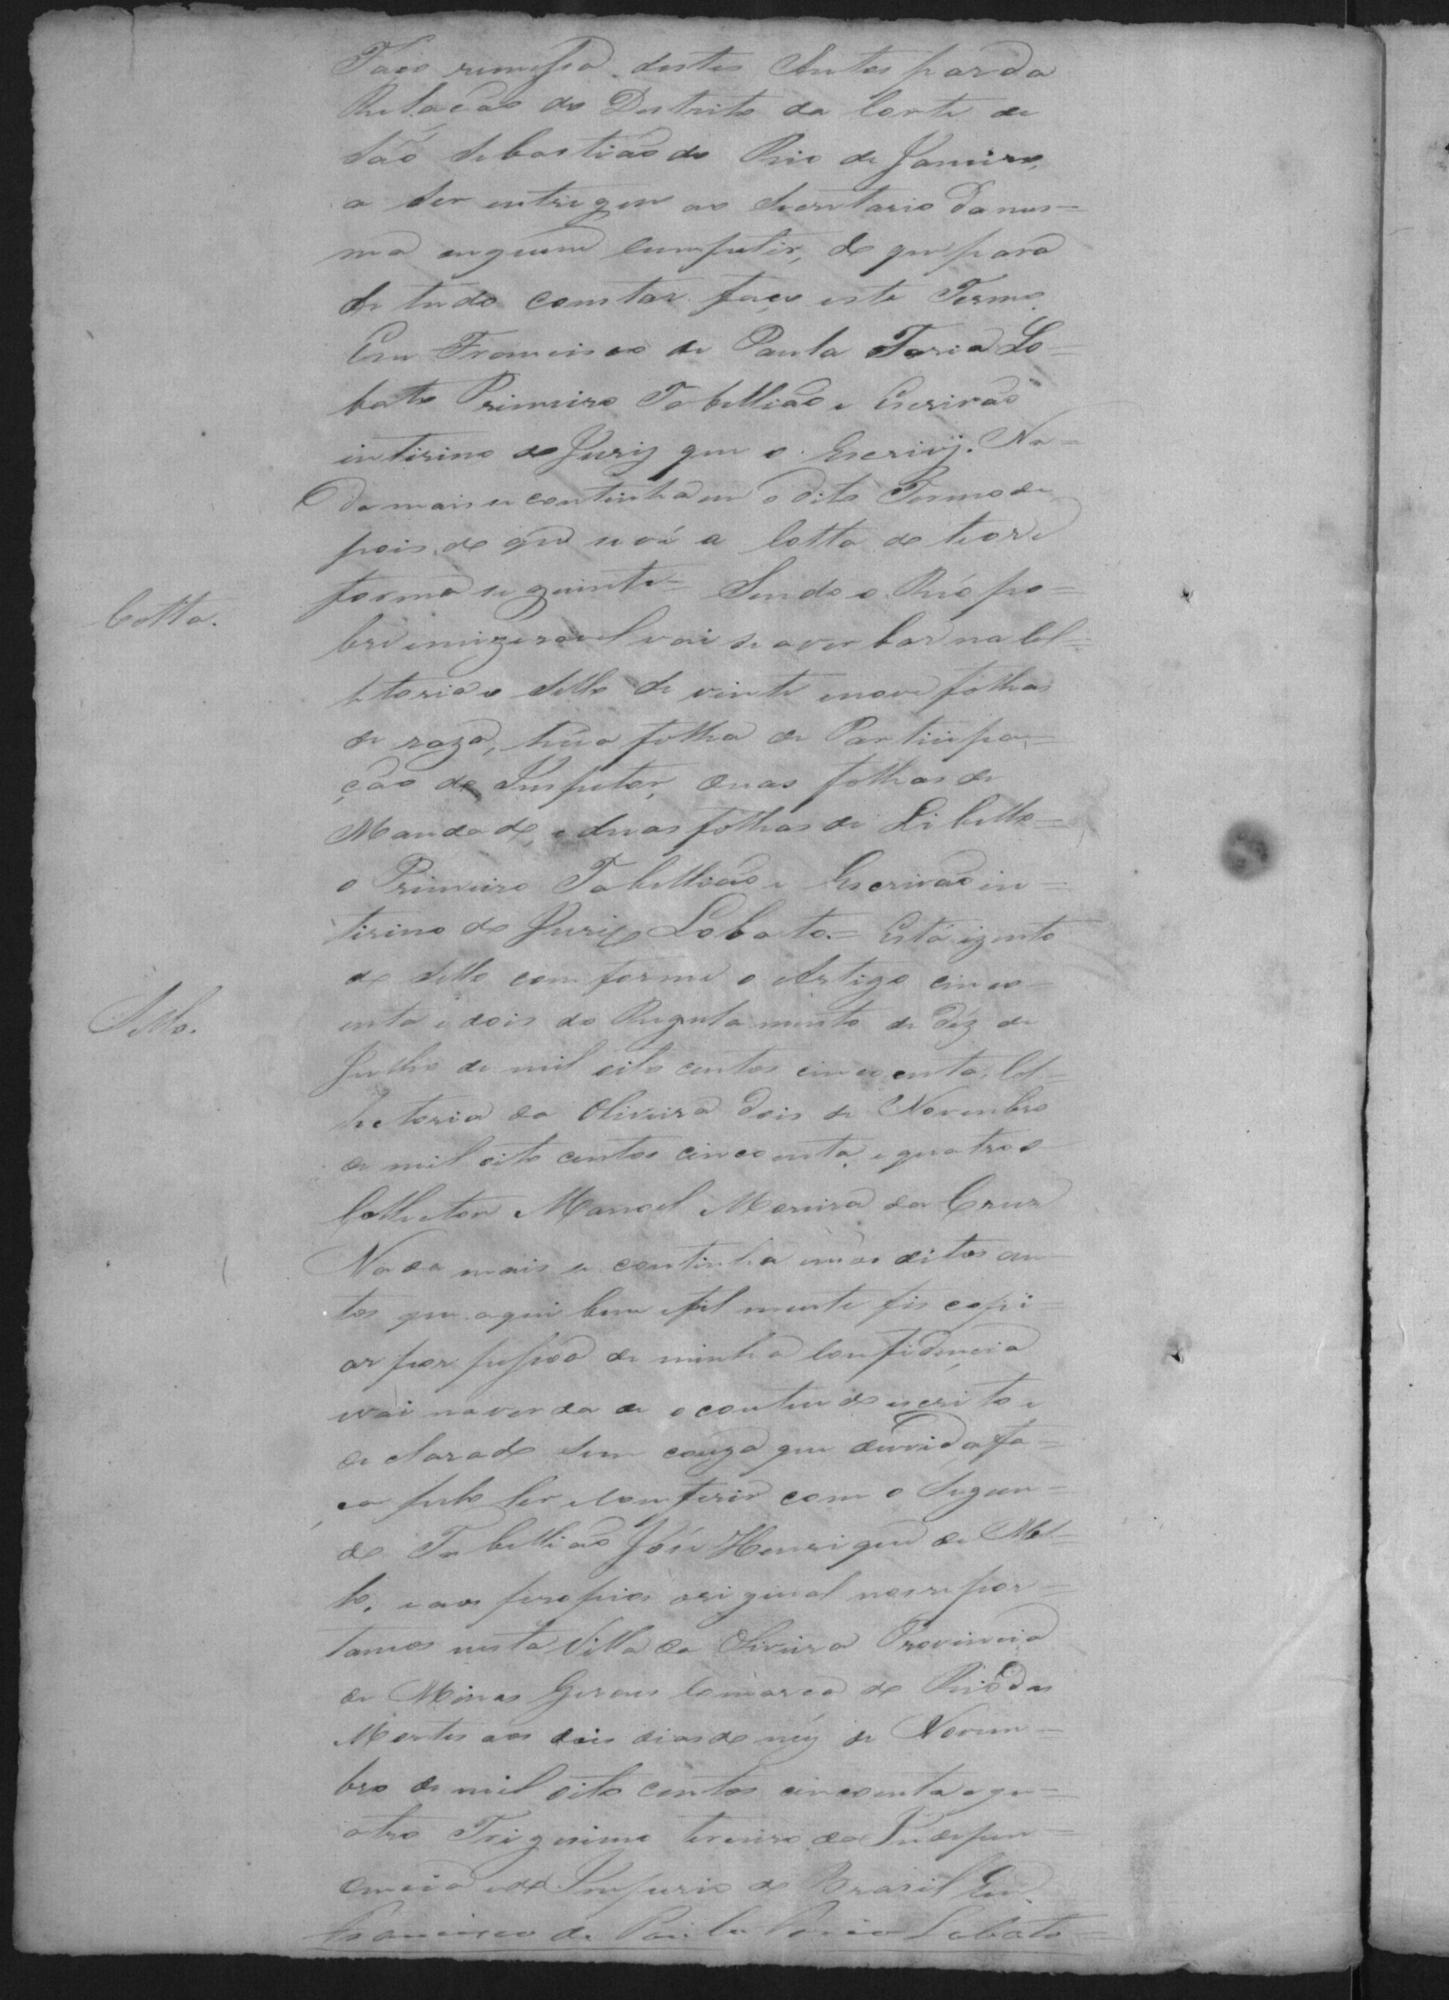 Faço remessa destes Autos para a
Relação do Destrito da Corte de
São Sebastião do Rio de Janeiro,
a ser entregue ao Secretario da mes=
ma aquem competir, do que para
de tudo constar faço este Termo.
Eu Francisco de Paula Faria Lo=
bato Primeiro Tabellião e Escrivão
intirino do Jury que o Escrivy. Na=
da mais se continha em o dito Termo de
pois do que se vê a Cotta do teor e
forma seguinte= Sendo o Réo po=
Cotta.
bre e mizeravel vai se averbar na Col=
letoria o Sello de vinte e nove folhas
de raza, hũa folha de Partiipa=
ção do Inspetor, duas folhas de
Mandado, e duas folhas de Libello=
o Primeiro Tabellião e Escrivão in=
tirino do Jury Lobato.= Está izento
do Sello comforme o Artigo cinco=
Sello.
enta e dois do Regulamento de déz de
Julho de mil oito centos cincoenta. Col=
letoria da Oliveira dois de Novembro
de mil oito centos cincoenta e quatro o
Collector Manoel Moreira da Cruz
Nada mais se continha em os ditos au
tos que aqui bem e fil mente fis copi
ar por pessoa de minha Confidencia
e vai na verdade o contiudo escrito e
declarado sem couza que duvida fa=
ça pelo ler e comferir com o Segun=
do Tabellião José Henriques de Mel=
lo, e aos proprios original nos repor=
tamos nesta Villa da Oliveira Provincia
de Minas Geraes Comarca do Rio das
Mortes aos dois dias do mez de Novem=
bro de mil oito centos cincoenta e qu=
atro Trigesimo terceiro da Indepen=
dencia e do Imperio do Brasil Eu
Francisco de Paula Faria Lobato=